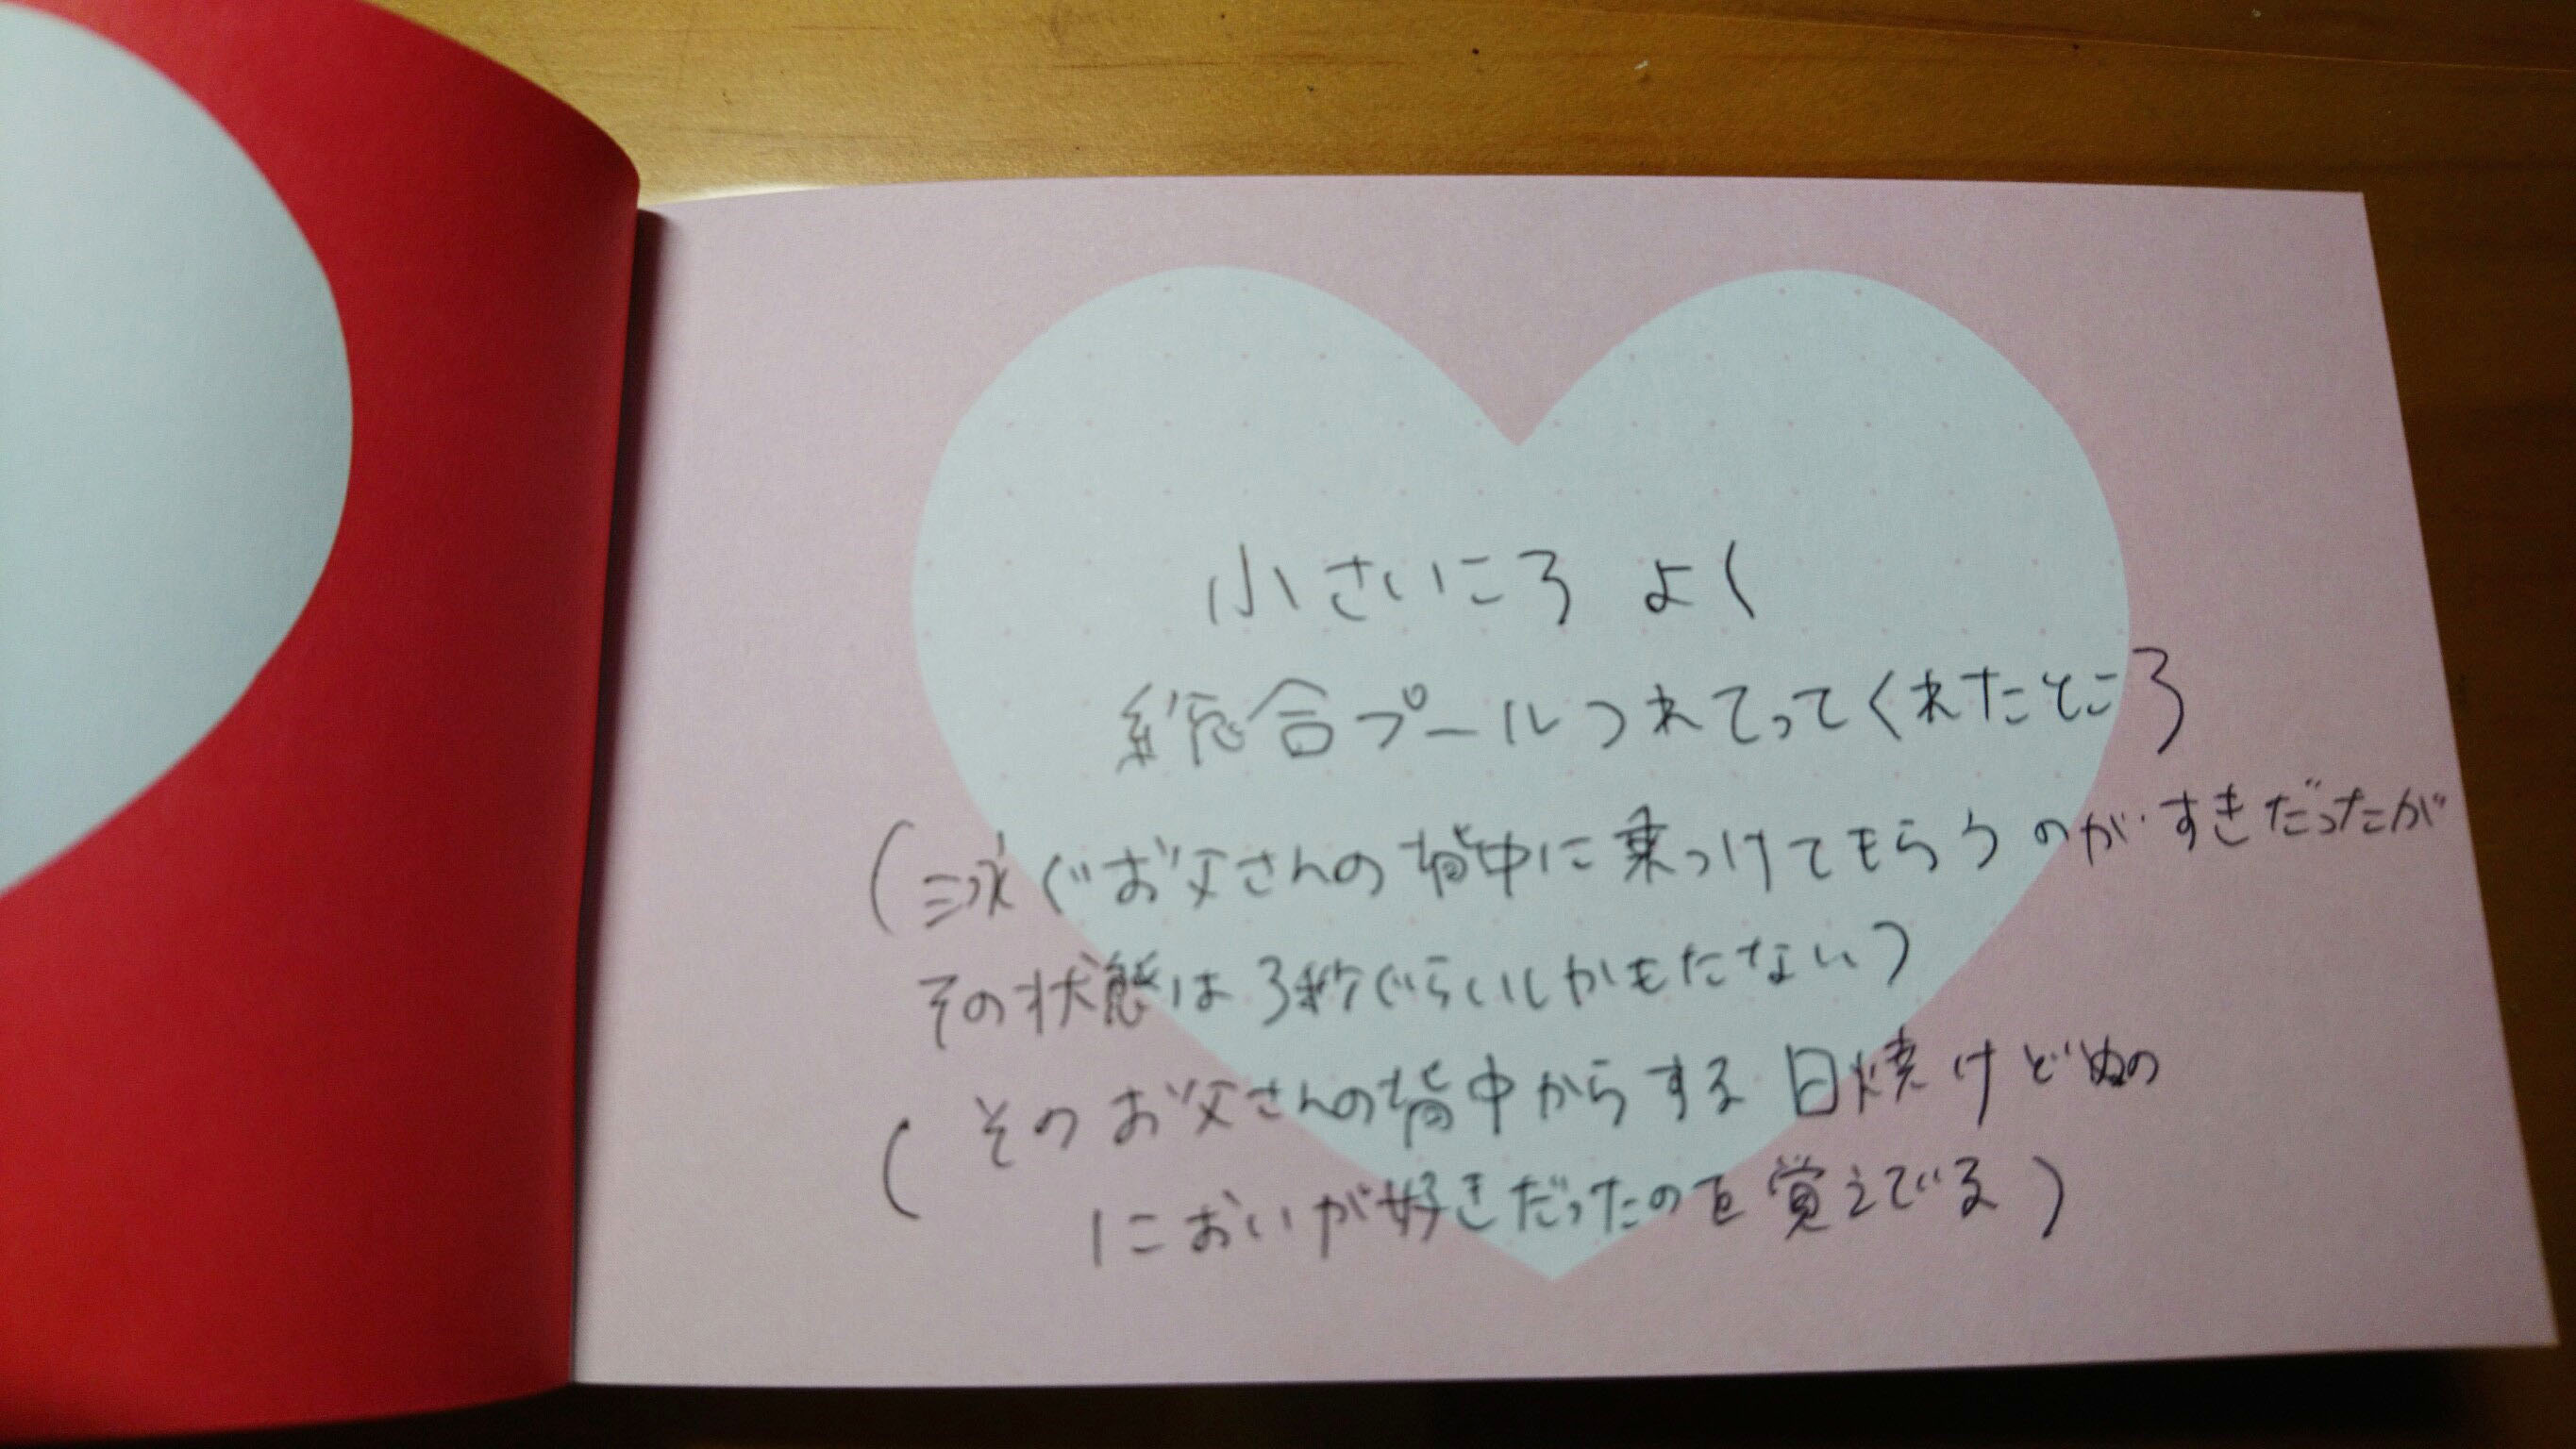 小さいころ よく
総合プールつれてってくれたところ
(泳ぐお父さんの背中に乗っけてもらうのがすきだったが
その状態は3秒ぐらいしかもたない)
(そのお父さんの背中からする日焼けどめの
においが好きだったのを覚えている)